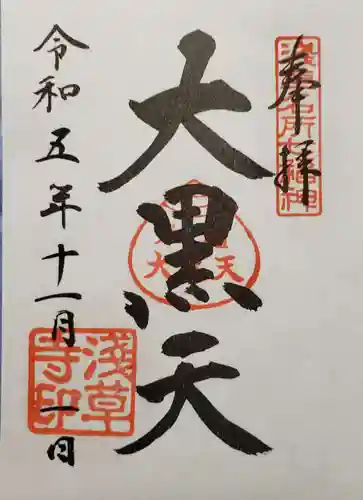 奉拝
浅草名所七福神
大黒天
大黒天
令和五年十一月一日
浅草寺印